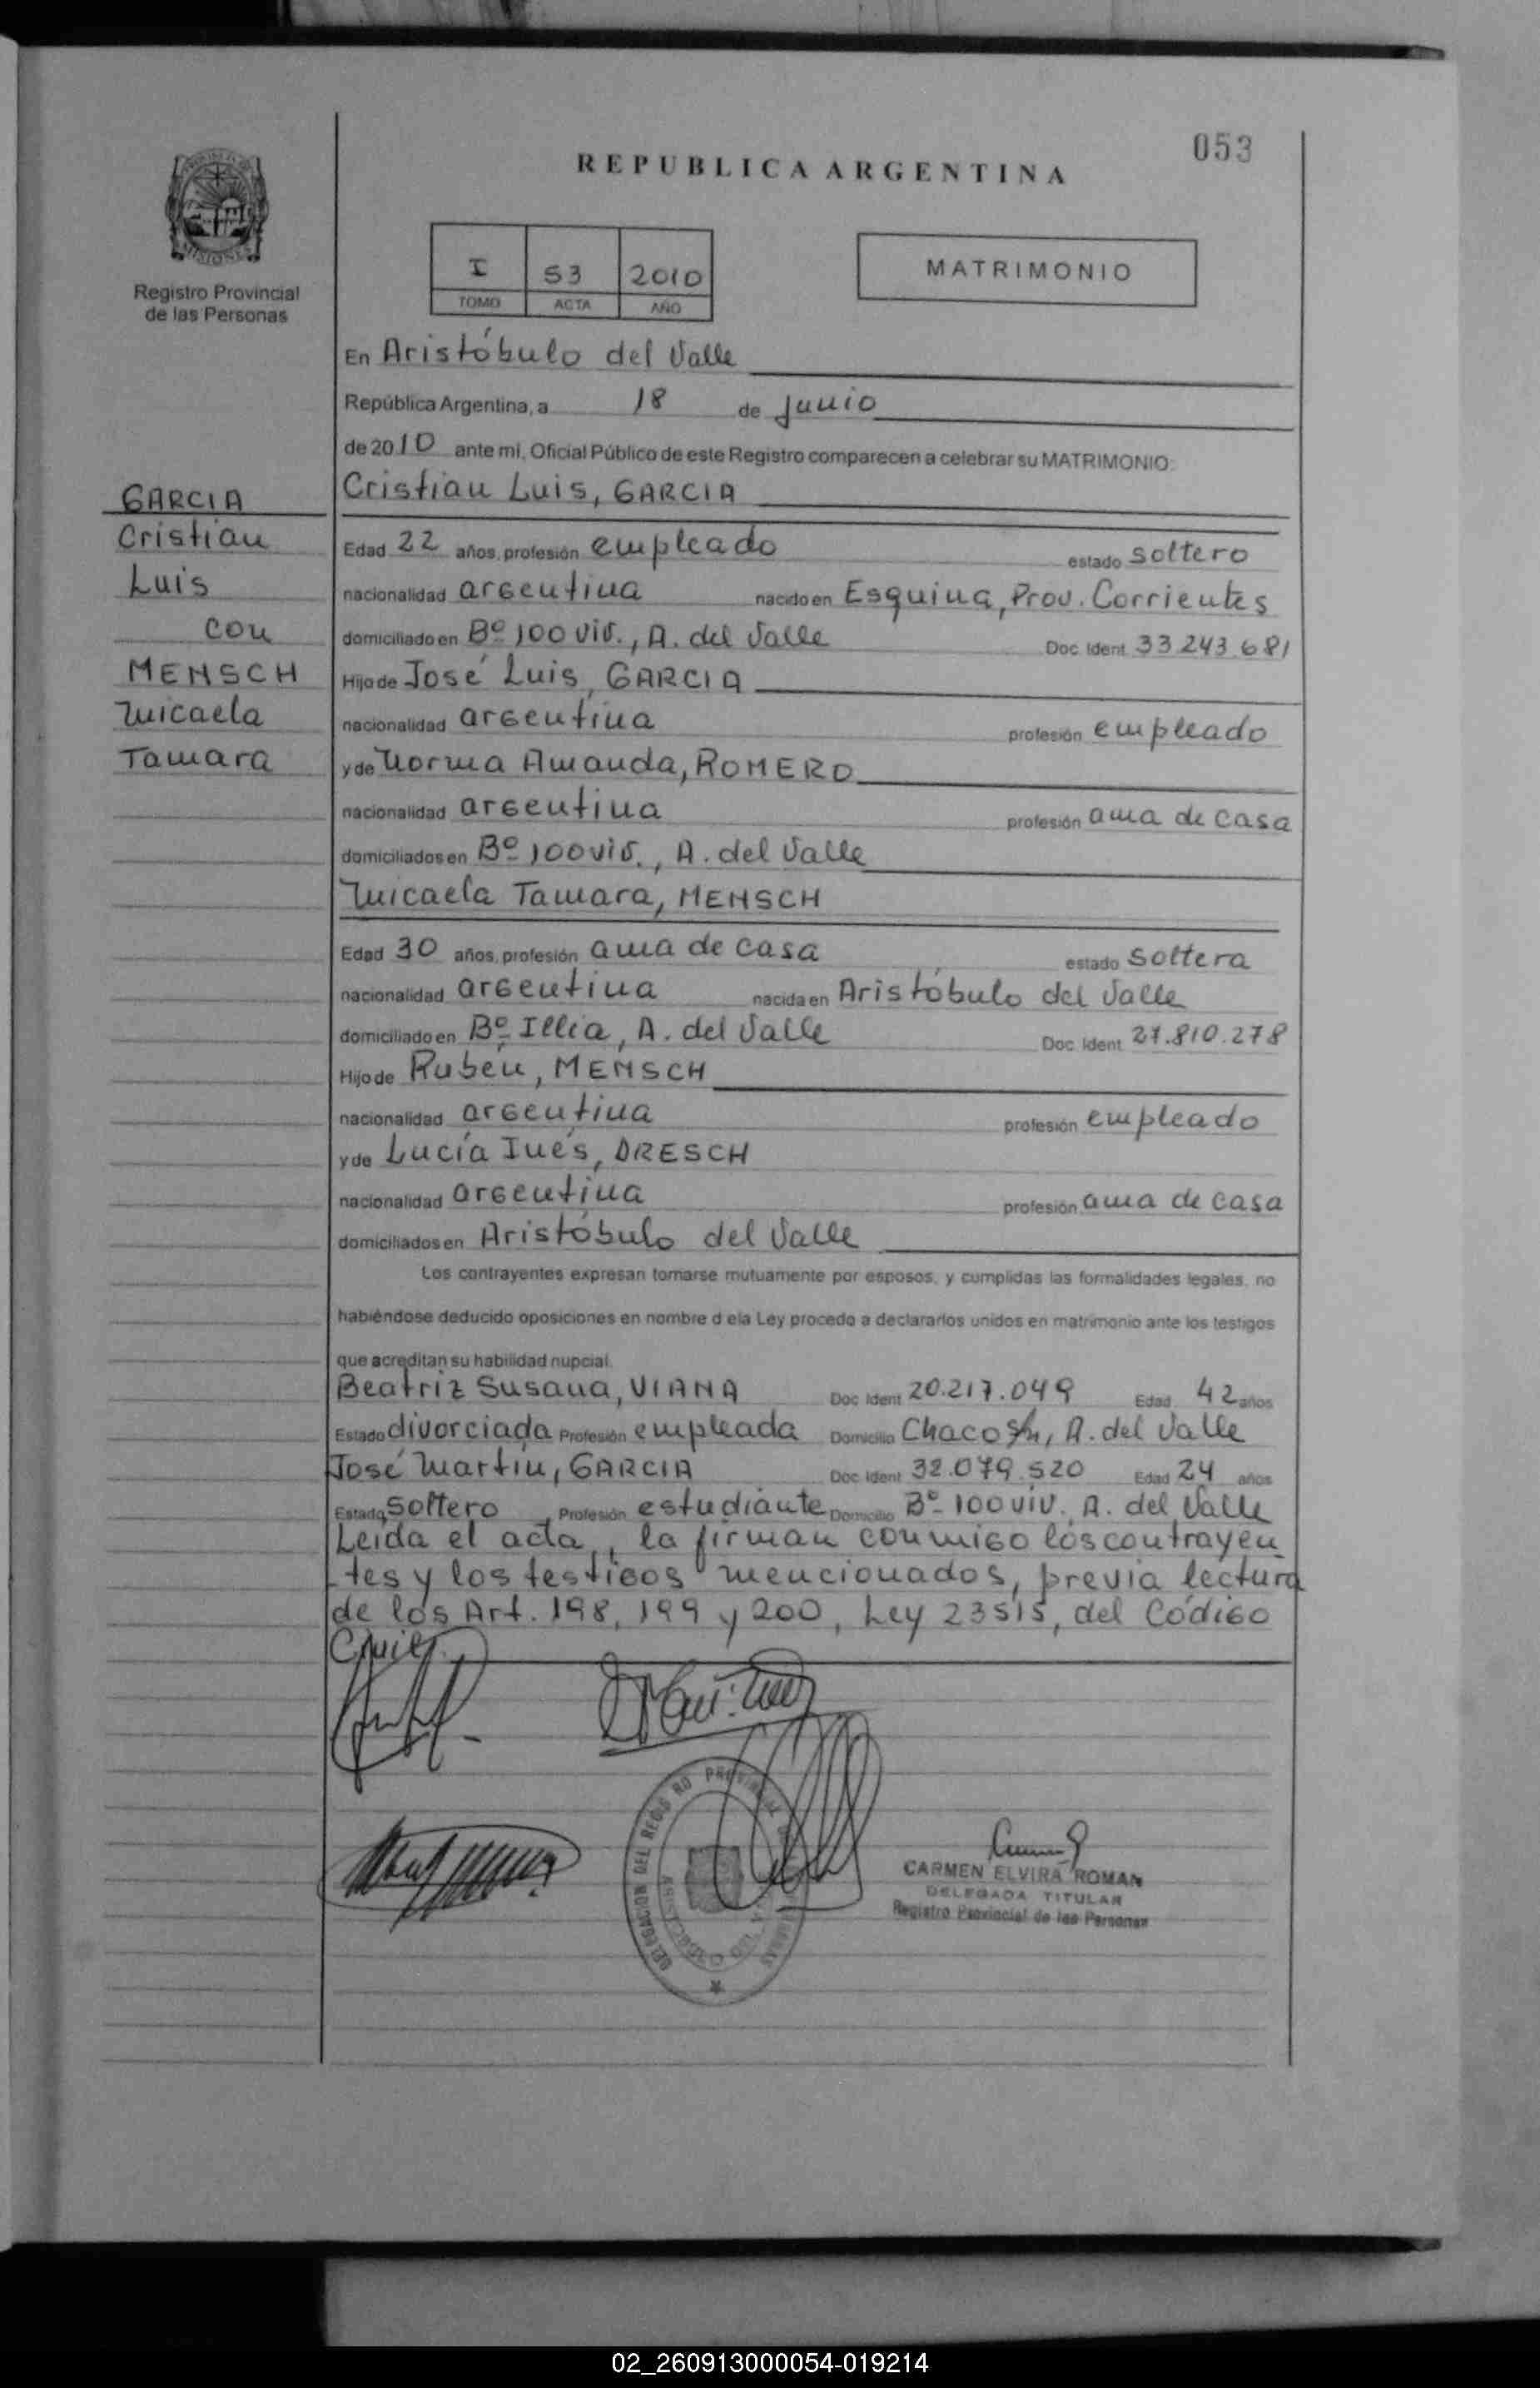 053
REPUBLICA ARGENTINA
MISIONES
Registro Provincial
de las Personas
I 53 2010
TOMO ACTA AÑO
MATRIMONIO
En Aristóbulo del Valle
República Argentina, a 18 de junio
de 2010 ante mi, Oficial Público de este Registro comparecen a celebrar su MATRIMONIO:
GARCIA
Cristian
Luis
con
MENSCH
Micaela
Tamara
Cristian Luis, GARCIA
Edad 22 años, profesión empleado estado soltero
nacionalidad argentina nacido en Esquina, Prov. Corrientes
domiciliado en Bº 100 viv., A. del Valle Doc. Ident. 33.243.681
Hijo de José Luis, GARCIA
nacionalidad argentina profesión empleado
y de Norma Amanda, ROMERO
nacionalidad argentina profesión ama de casa
domiciliados en Bº 100 viv., A. del Valle
Micaela Tamara, MENSCH
Edad 30 años, profesión ama de casa estado soltera
nacionalidad argentina nacida en Aristóbulo del Valle
domiciliado en Bº Illia, A. del Valle Doc. Ident. 27.810.278
Hijo de Rubén, MENSCH
nacionalidad argentina profesión empleado
y de Lucía Inés, DRESCH
nacionalidad argentina profesión ama de casa
domiciliados en Aristóbulo del Valle
Los contrayentes expresan tomarse mutuamente por esposos, y cumplidas las formalidades legales, no
habiéndose deducido oposiciones en nombre d ela Ley procedo a declararlos unidos en matrimonio ante los testigos
que acreditan su habilidad nupcial.
Beatriz Susana, VIANA Doc. Ident. 20.217.049 Edad 42 años
Estado divorciada Profesión empleada Domicilio Chaco s/n, A. del Valle
José Martín, GARCIA Doc. Ident. 32.079.520 Edad 24 años
Estado soltero Profesión estudiante Domicilio Bº 100 viv. A. del Valle
Leida el acta, la firman conmigo los contrayen
tes y los testigos mencionados, previa lectura
de los Art. 198, 199 y 200, Ley 23515, del Código
Civil.
DELEGACION DEL REGISTRO PROVINCIAL
CARMEN ELVIRA ROMAN
DELEGADA TITULAR
Registro Provincial de las Personas
02_260913000054-019214